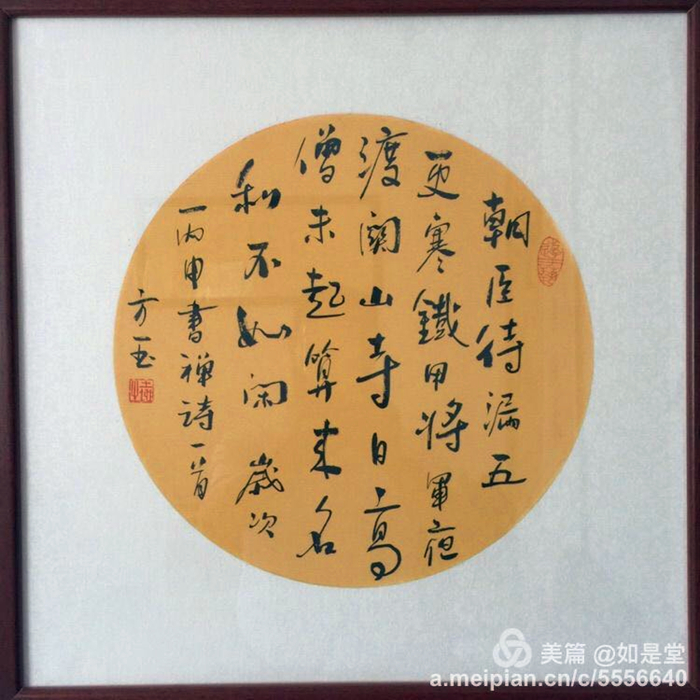 朝臣待漏五
更寒鐵甲將軍夜
渡關山寺日高
僧未起算來名
利不如闲歲次
丙申書禅詩一首
方玉
美篇 @如是堂
a.meipian.cn/c/5556640